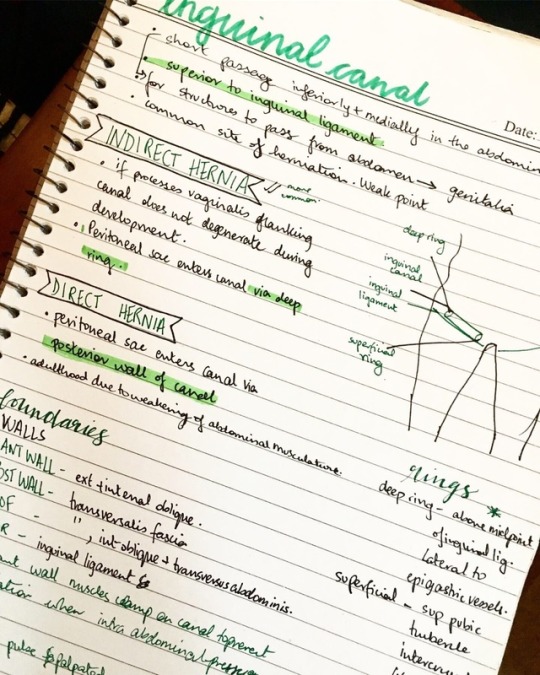 inguinal canal
Date:
• short passage inferiorly + medially in the abdomin
• superior to inguinal ligament
↳ for structures to pass from abdomen → genitalia
• common site of herniation. Weak point
INDIRECT HERNIA
more common
• if processes vaginalis flanking
canal does not degenerate during
development.
• Peritoneal sac enters canal via deep
ring.
deep ring
inguinal canal
inguinal ligament
superficial ring
DIRECT HERNIA
• peritoneal sac enters canal via
posterior wall of canal
• adulthood due to weakening of abdominal musculature.
boundaries
WALLS
ANT WALL - ext + internal oblique.
OST WALL - transversalis fascia
OF - " , int oblique + transversus abdominis.
R - inguinal ligament
wall muscles clamp on canal to prevent
ation when intra abdominal pressure
pulse palpated
rings *
deep ring - above midpoint
of inguinal lig.
lateral to
epigastric vessels.
superficial - sup pubic
tubercle